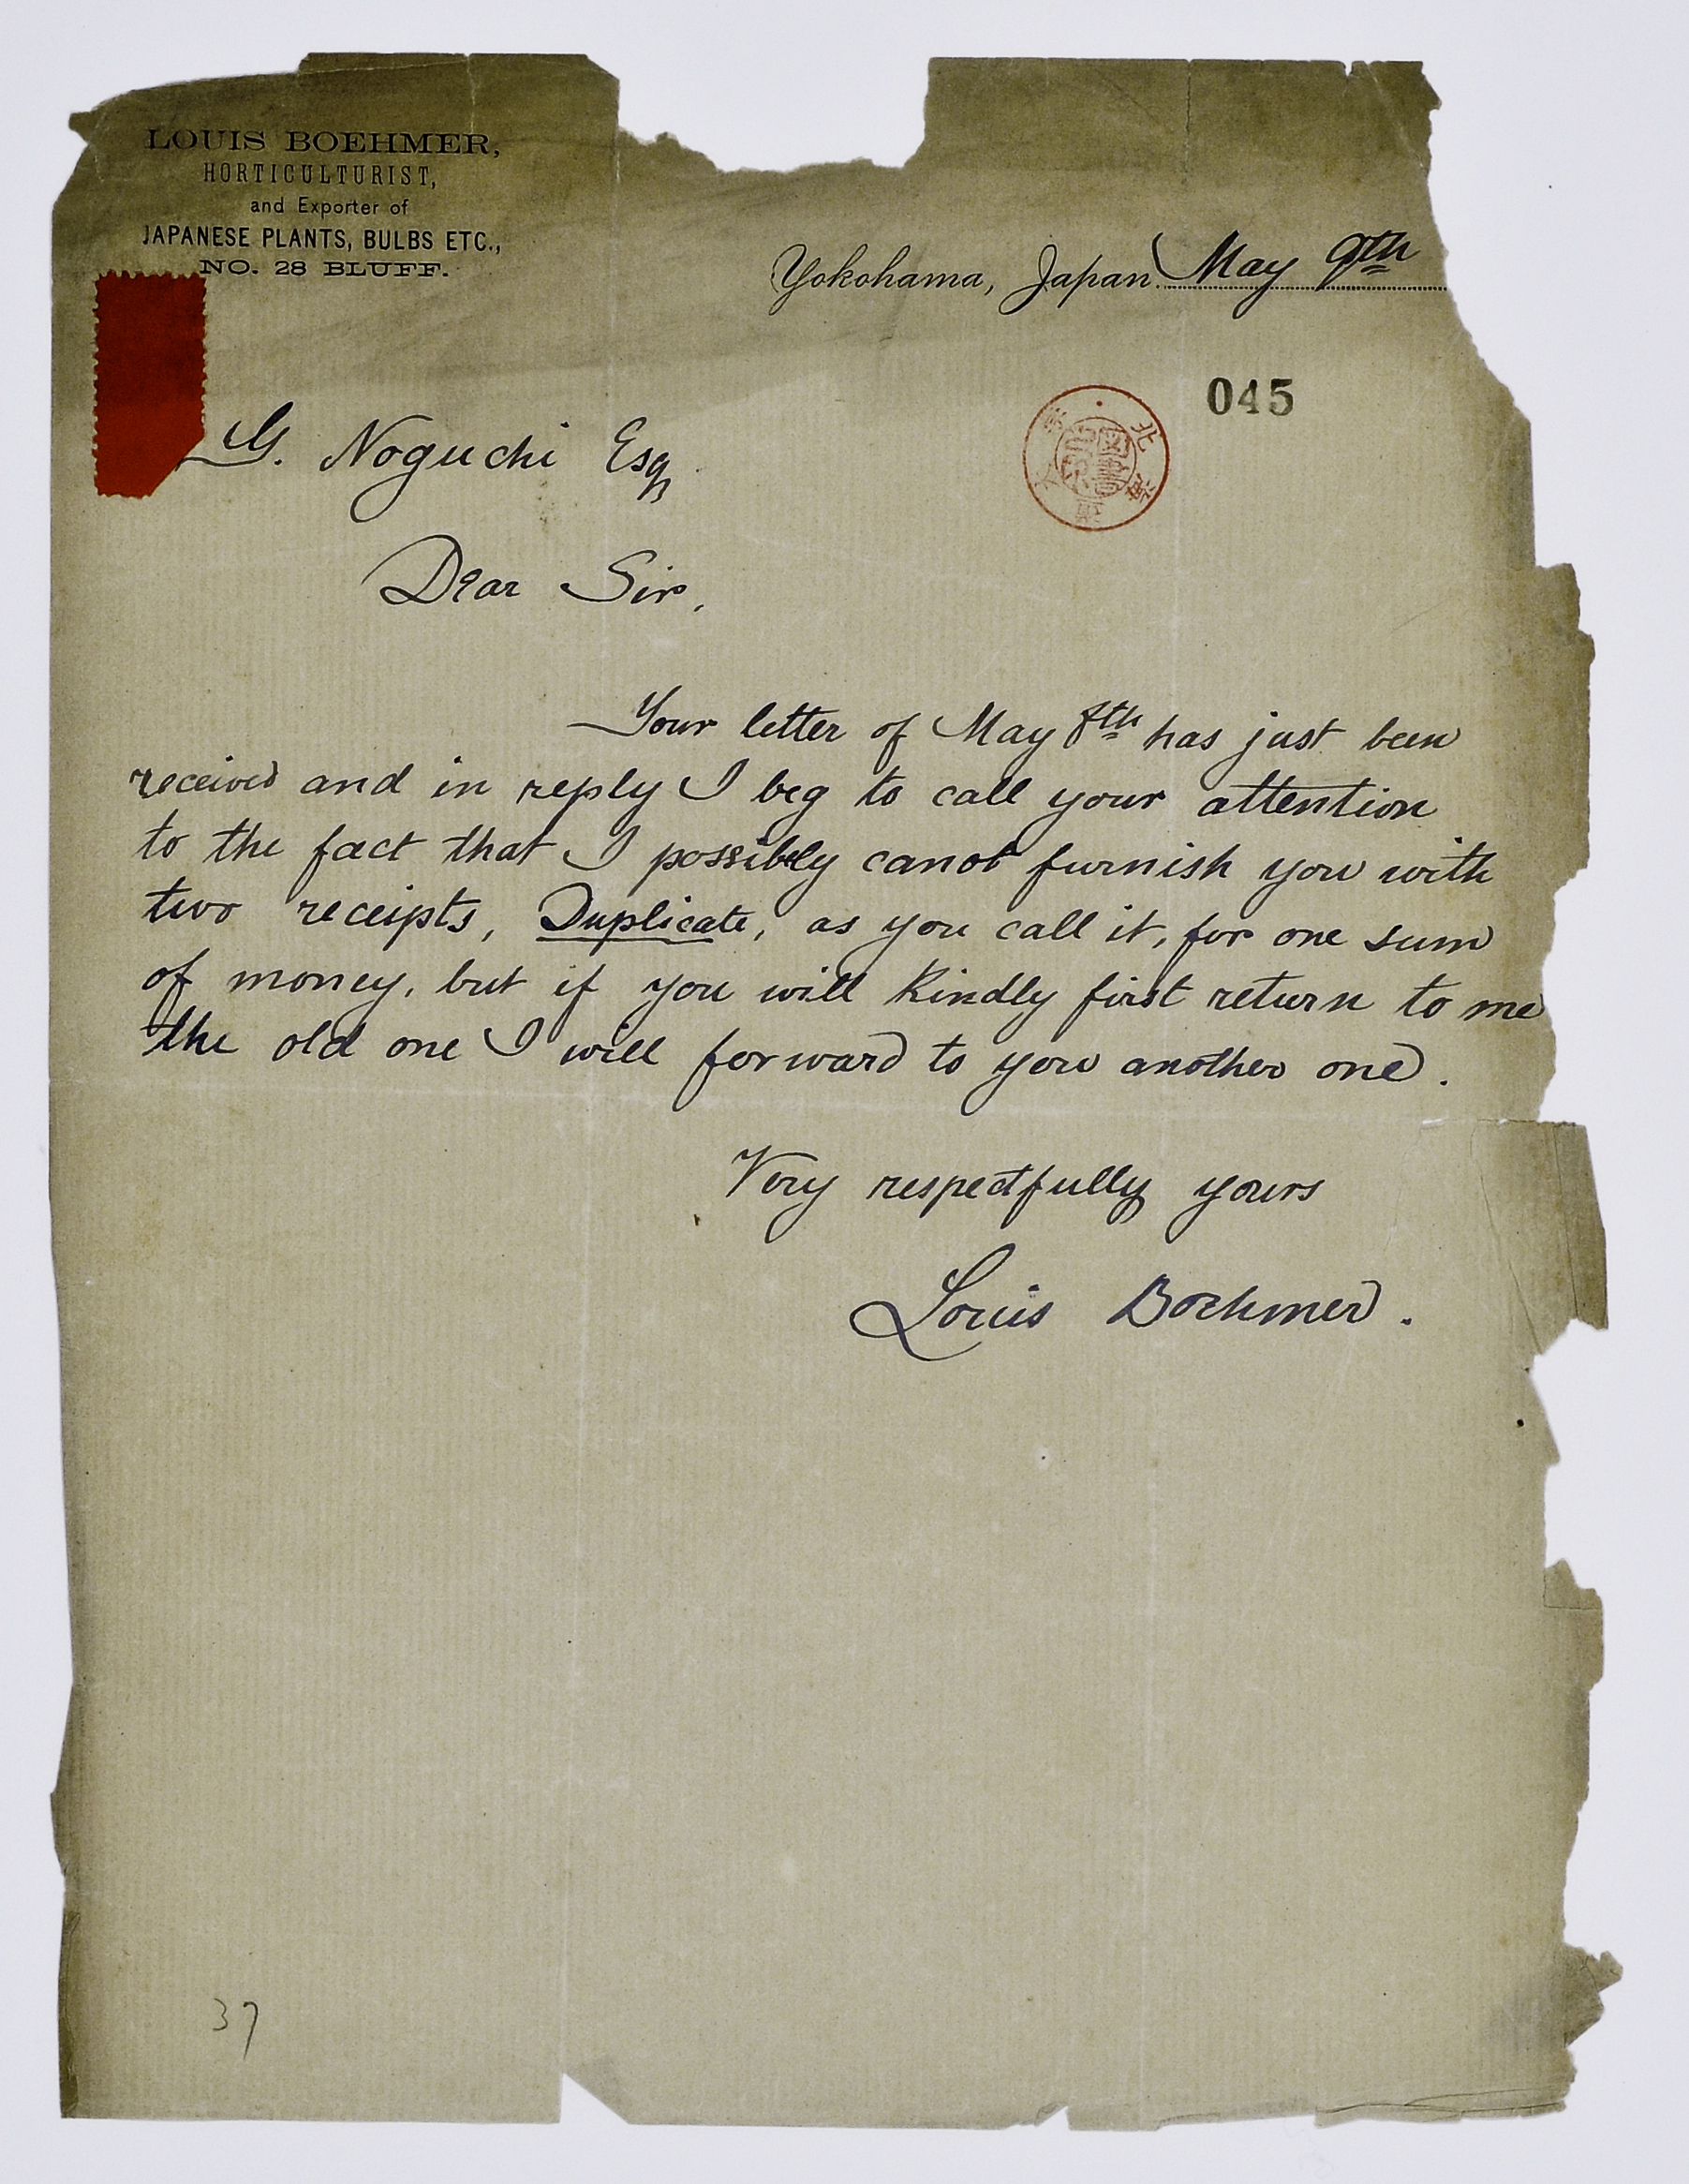 LOUIS BOEHMER,
HORTICULTURIST,
and Exporter of
JAPANESE PLANTS, BULBS ETC.,
NO. 28 BLUFF.
Yokohama, Japan May 9th
045
G. Noguchi Esq
Dear Sir,
Your letter of May 8th has just been
received and in reply I beg to call your attention
to the fact that I possibly canot furnish you with
two receipts, Duplicate, as you call it, for one sum
of money, but if you will kindly first return to me
the old one I will forward to you another one.
Very respectfully yours
Louis Boehmer.
37